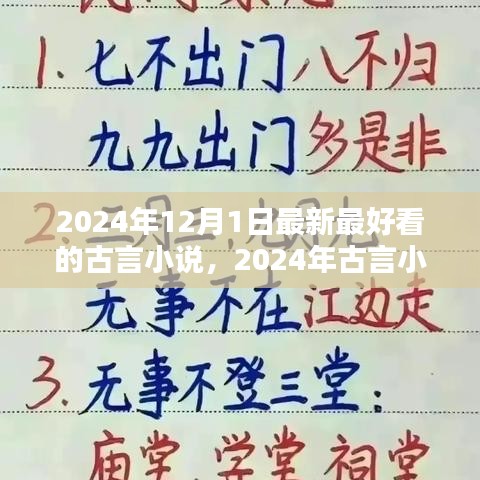 1. 七不出门八不归
九九出门多是非
2024年12月1日最新最好看
的古言小说，2024年古言小
无事不在江边走
3. 无事不登三堂：
庙堂、学堂、祠堂